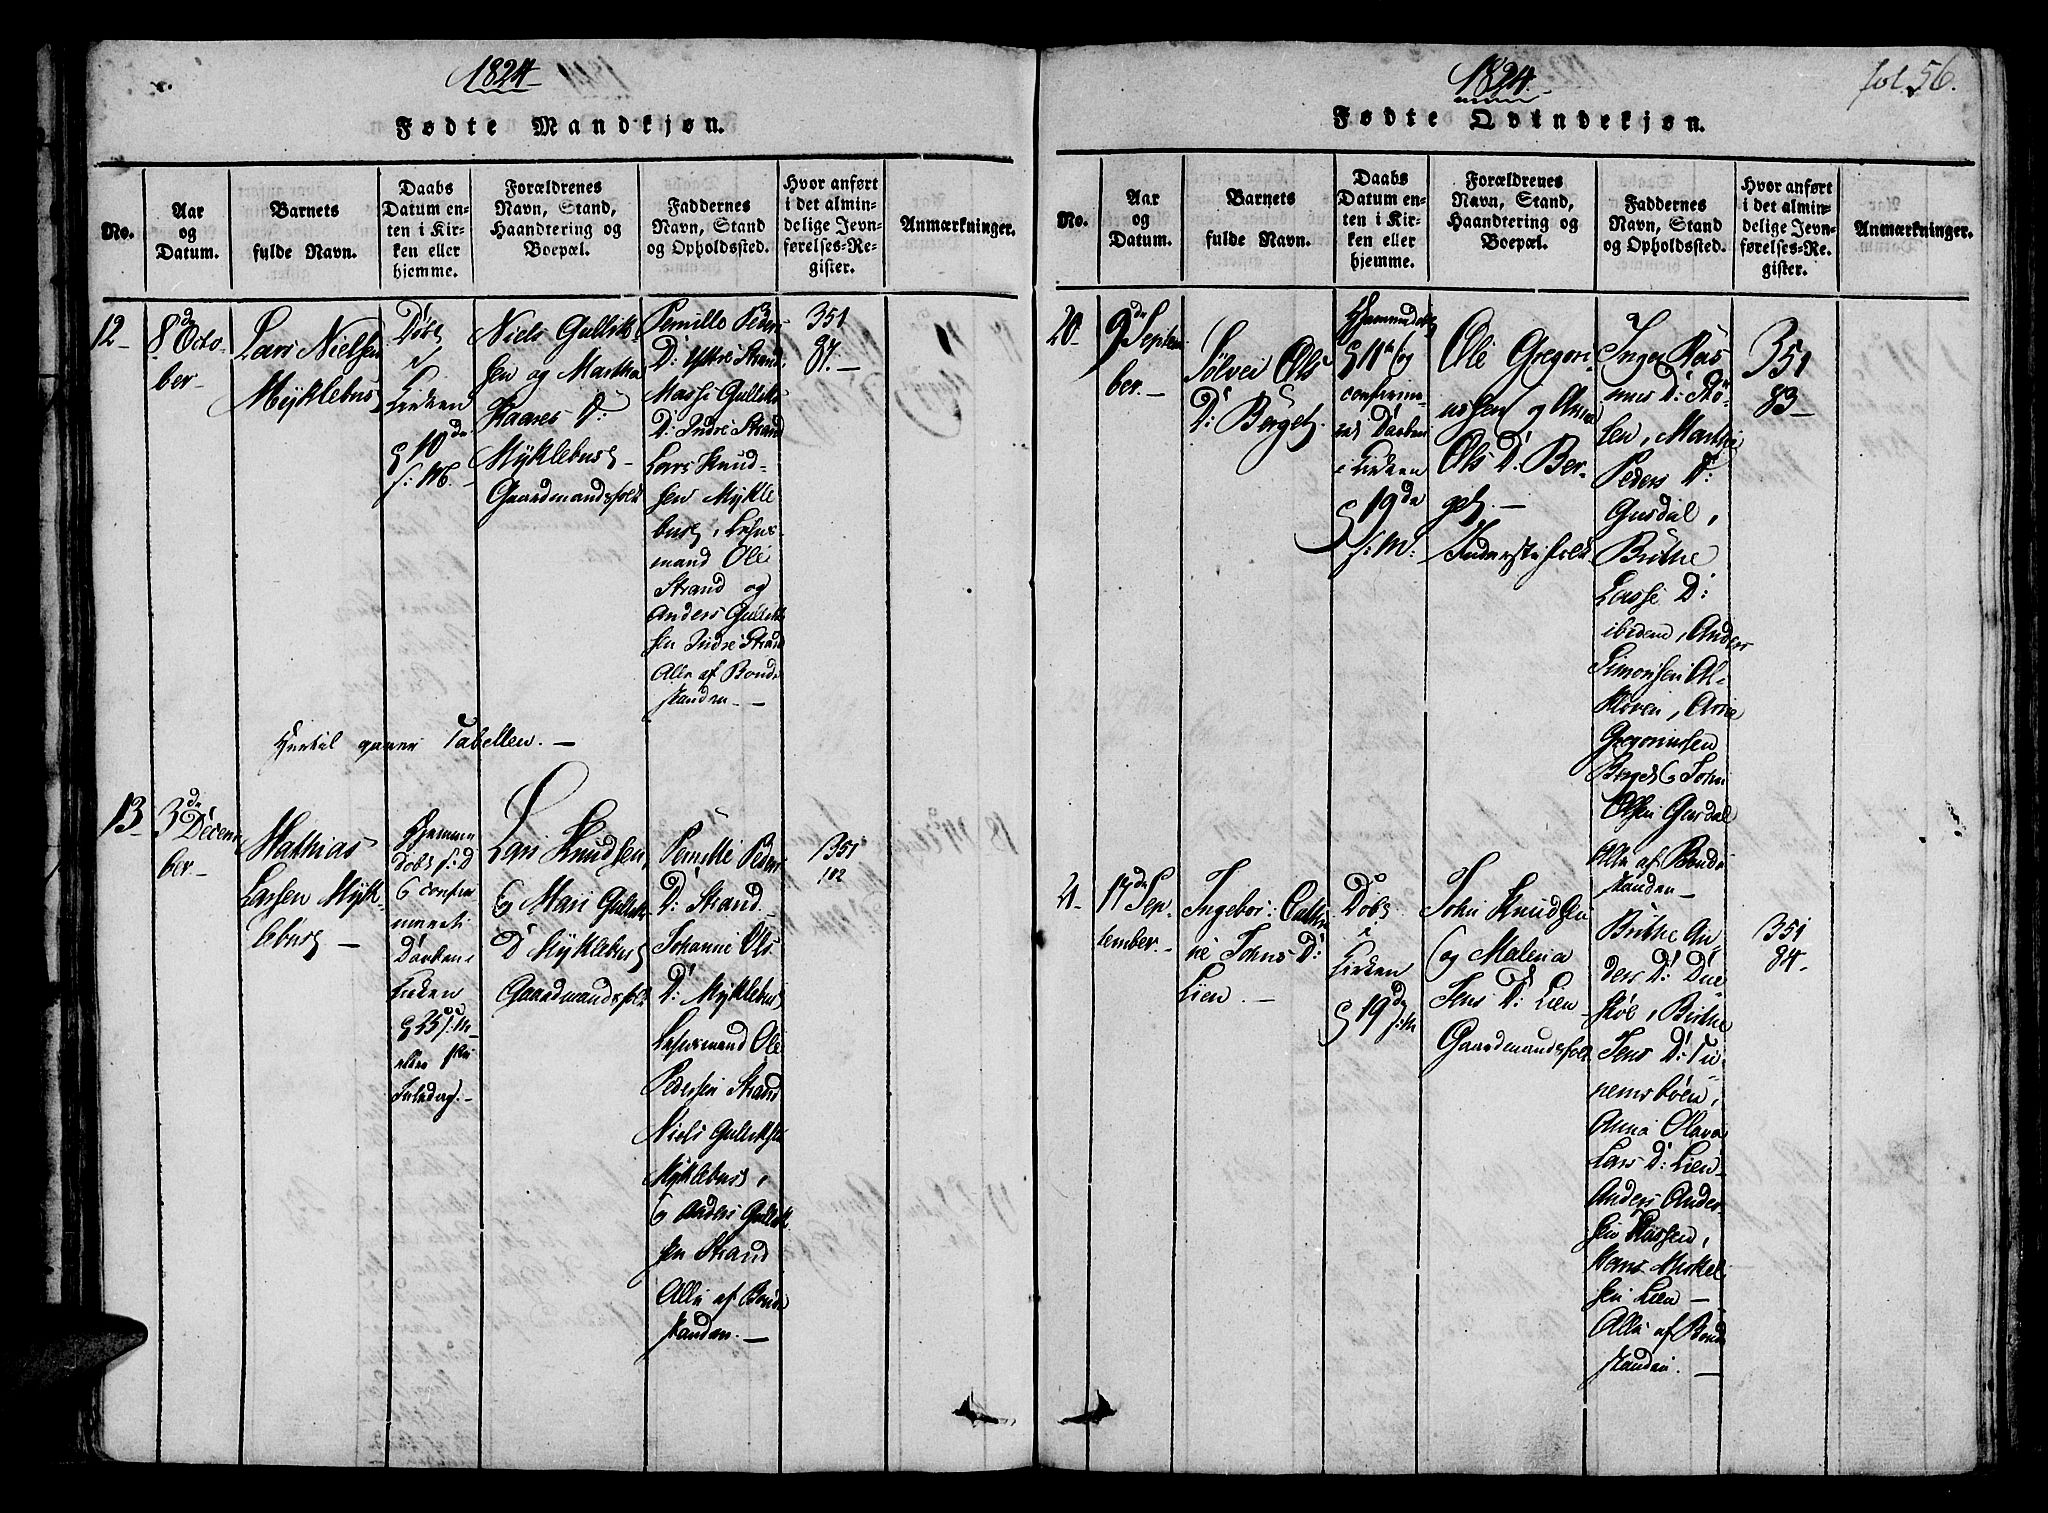 1824
Fødte Mandkjøn.
No.
Aar
og
Datum.
Barnets
fulde Navn.
Daabs
Datum en-
ten i Kir-
ken eller
hjemme.
Forældrenes
Navn, Stand,
Haandtering og
Boepæl.
Faddernes
Navn, Stand
og Opholdssted.
Hvor anført
i det almin-
delige Jevn-
førelses-Re-
gister.
Anmærkninger.
12
8de Octo-
ber
Lars Nielsen
Myklebust
Døbt
i
Kirken
d 10de
s: M.
Niels Gulliks
sen og Martha
Kaares D:
Myklebust
Gaardmandsfolk
Pernille Peders
D: Yttre Strand
Masse Gulliks
D: Indre Strand
Lars Knud-
sen Mykle
bust, Lehns
mand Ole
Strand og
Anders Gulliks
sen Indre Strand
Alle af Bonde
standen
351
87.
Hertil gaaer Tabellen.
13
3de Decem
ber
Mathias
Larsen Myk-
lebust
Hjemme
døbt s: D
og confir
meret
Daaben i
Kirken
Juledag.
Lars Knudsen
og Mari Gulliks
D Myklebust
Gaardmandsfolk
Pernille Peders
D: Strand
Johanne Ols
D: Myklebust
Lehnsmand Ole
Pedersen Strand
Niels Gulliksen
Myklebust,
og Anders Gullik
sen Strand
Alle af Bonde
standen.
351
112
1824.
fol. 56.
Fødte Qvindekjøn.
No.
Aar
og
Datum.
Barnets
fulde Navn.
Daabs
Datum en-
ten i Kir-
ken eller
hjemme.
Forældrenes
Navn, Stand,
Haandtering og
Boepæl.
Faddernes
Navn, Stand
og Opholdssted.
Hvor anført
i det almin-
delige Jevn-
førelses-Re-
gister.
Anmærkninger.
20
9de Septem
ber.
Sølvei Ols
D: Berget
Hjemmedøbt
d 11te og
confirme-
ret Daaben
i Kirken
d 19de
s: M:
Ole Gregori
ussen og Anne
Ols D: Ber-
get.
Inderstefolk
Inger Ras
mus D: Stø-
len, Marthe
Peders D:
Gusdal,
Brithe
Lasse D:
ibidem, Anders
Simonsen Al-
Arne
Gregoriussen
Berget og John
Olsen Gusdal
Alle af Bonde
standen
351
83
21
17de Sep
tember.
Ingebor: Cathri
ne Johns D:
Lien.
Døbt
i
Kirken
d 19de s: M
John Knudsen
og Malena
Jens D: Lien
Gaardmandsfolk
Brithe An-
ders D: Due
støl, Brithe
Jens D: Tu-
nemsbøen,
Anna Olava
Lars D: Lien
Anders Ander
sen Aassen,
Hans Mikkel
sen Lien
Alle af Bonde
standen.
351
84